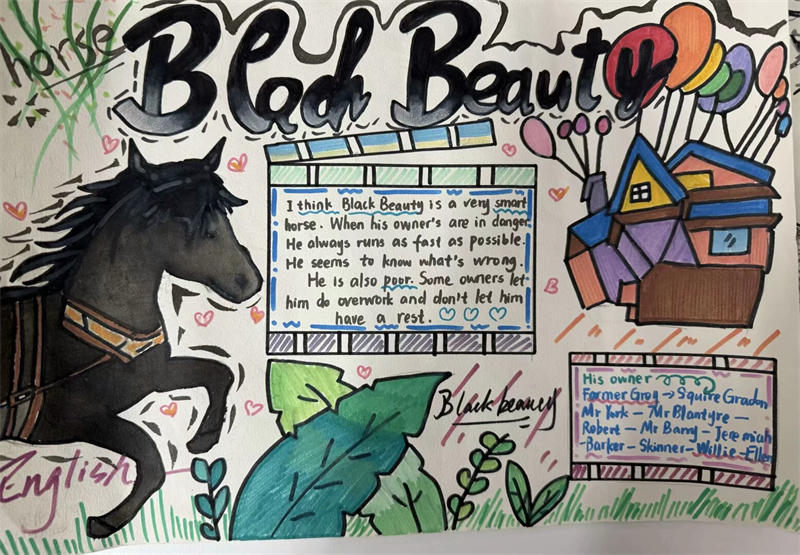 horse
Black Beauty
I think Black Beauty is a very smart
horse. When his owner's are in danger
He always runs as fast as possible.
He seems to know what's wrong.
He is also poor. Some owners let
him do overwork and don't let him
have a rest.
Black beauty
His owner
Farmer Grey → Squire Gradon
Mr York — Mr Blantyre —
Robert — Mr Barry — Jeremiah
-Barker — Skinner — Willie — Ellen
English